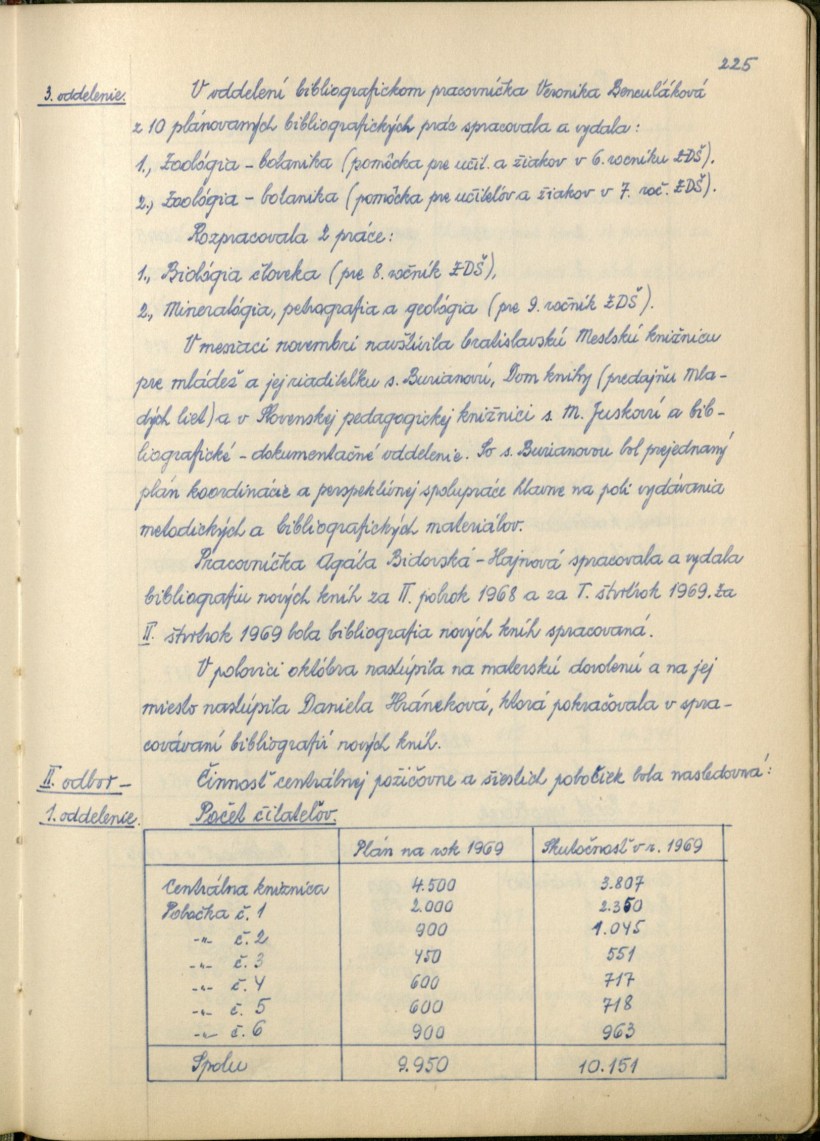 225
3. oddelenie.
V oddelení bibliografickom pracovníčka Veronika Benculáková
z 10 plánovaných bibliografických prác spracovala a vydala:
1., Zoológia - botanika (pomôcka pre učit. a žiakov v 6. ročníku ZDŠ).
2., Zoológia - botanika (pomôcka pre učiteľov a žiakov v 7. roč. ZDŠ).
Rozpracovala 2 práce:
1., Biológia človeka (pre 8. ročník ZDŠ),
2., Mineralógia, petrografia a geológia (pre 9. ročník ZDŠ).
V mesiaci novembri navštívila bratislavskú Mestskú knižnicu
pre mládež a jej riaditeľku s. Burianovú, Dom knihy (predajňu Mla-
dých liet) a v Slovenskej pedagogickej knižnici s. M. Juskovú a bib-
liografické - dokumentačné oddelenie. So s. Burianovou bol prejednaný
plán koordinácie a perspektívnej spolupráce hlavne na poli vydávania
metodických a bibliografických materiálov.
Pracovníčka Agáta Bidovská - Hajnová spracovala a vydala
bibliografiu nových kníh za II. polrok 1968 a za I. štvrťrok 1969. Za
II. štvrťrok 1969 bola bibliografia nových kníh spracovaná.
V polovici októbra nastúpila na materskú dovolenú a na jej
miesto nastúpila Daniela Hráneková, ktorá pokračovala v spra-
covávaní bibliografií nových kníh.
II. odbor -
1. oddelenie.
Činnosť centrálnej požičovne a šiestich pobočiek bola nasledovná:
Počet čitateľov.
Plán na rok 1969 Skutočnosť v r. 1969
Centrálna knižnica 4.500 3.807
Pobočka č. 1 2.000 2.350
-"- č. 2 900 1.045
-"- č. 3 450 551
-"- č. 4 600 717
-"- č. 5 600 718
-"- č. 6 900 963
Spolu 9.950 10.151